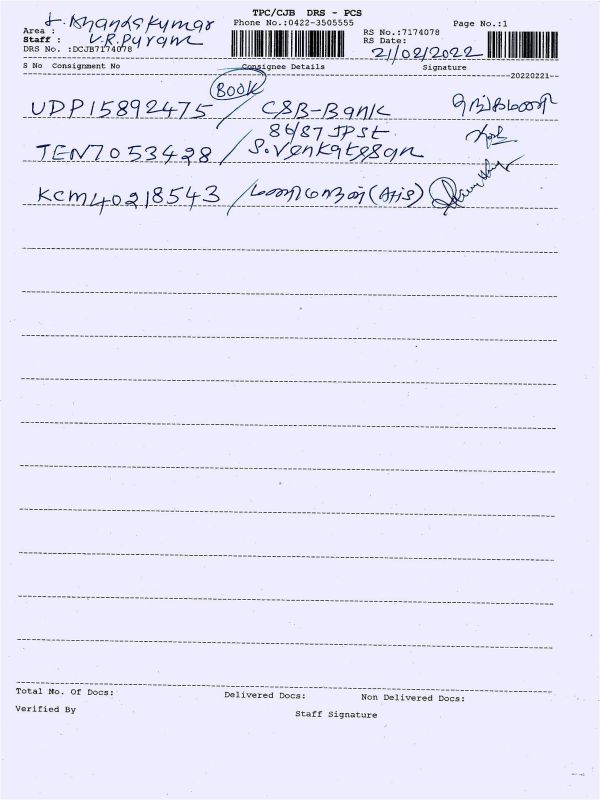 TPC/CJB DRS - PCS
Area :
Phone No.:0422-3505555
Page No.:1
Staff : V.R.Puram
RS No.:7174078
DRS No. :DCJB7174078
RS Date: 21/02/2022
S No Consignment No Consignee Details Signature
--20220221--
BOOK
UDP15892475 / CSB-Bank
86/87 JPSt
TEN7053428 / S.Venkatesan
KCM40218543 /
Total No. Of Docs: Delivered Docs: Non Delivered Docs:
Verified By Staff Signature